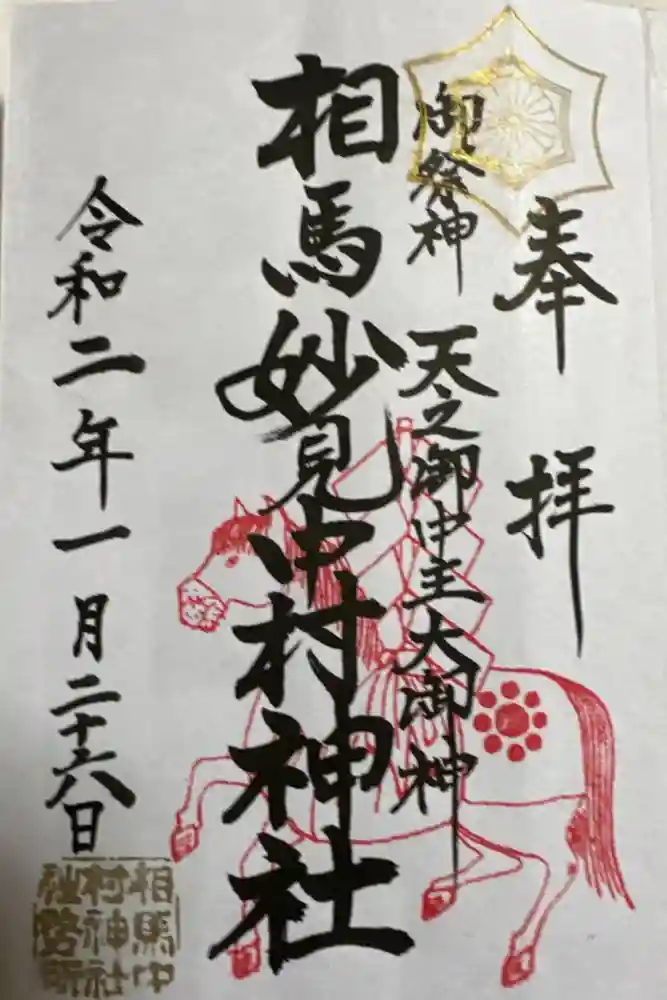 奉拝
御祭神 天之御中主大御神
相馬妙見中村神社
令和二年一月二十六日
相馬中
村神社
社務所